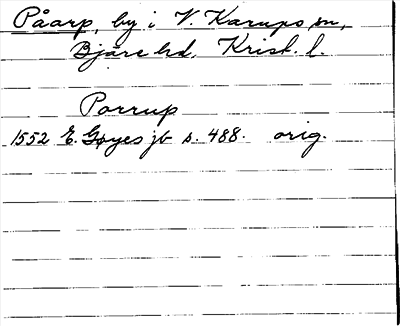 Påarp, by i V. Karups sn,
Bjäre hd. Krist. l.
Porrup
1552 E. Gøyes jb s. 488. orig.